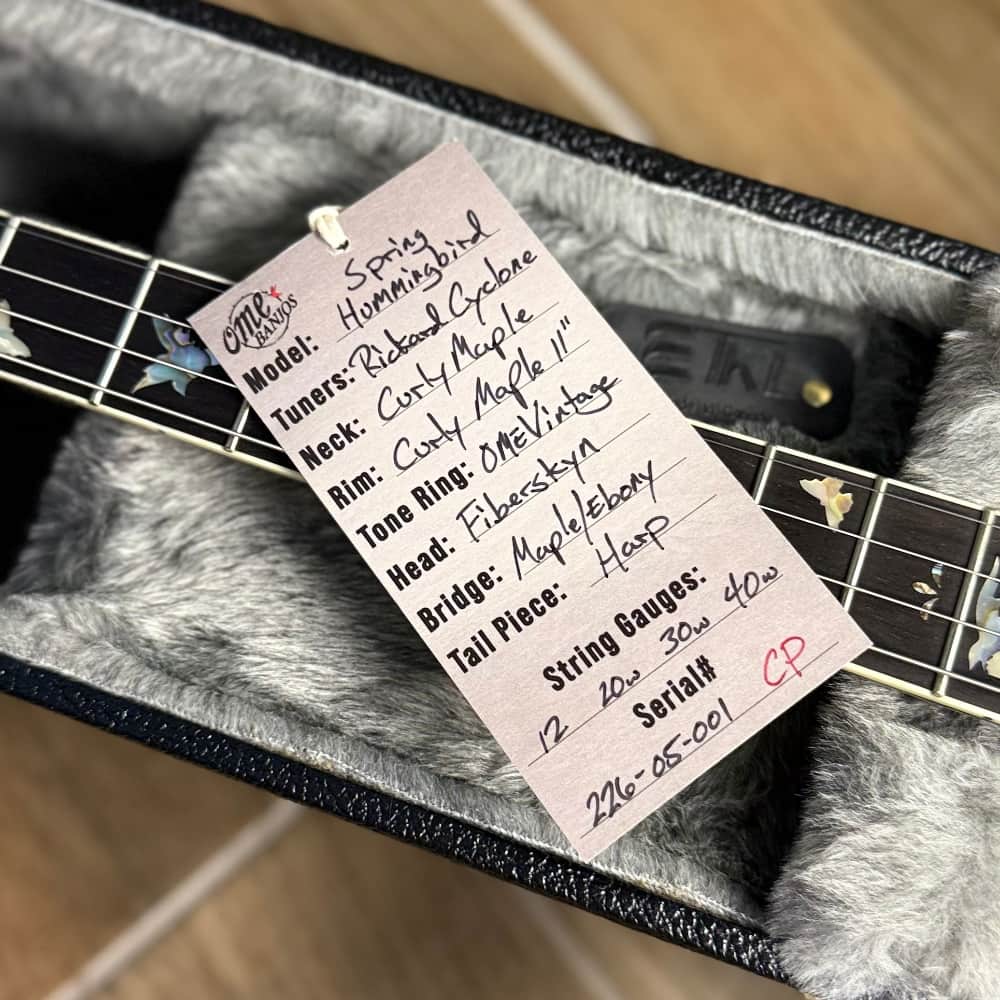 OME
BANJOS
Model: Spring
Hummingbird
Tuners: Rickard Cyclone
Neck: Curly Maple
Rim: Curly Maple 11"
Tone Ring: OME Vintage
Head: Fiberskyn
Bridge: Maple/Ebony
Tail Piece: Harp
String Gauges:
12 20w 30w 40w
Serial# CP
226-05-001